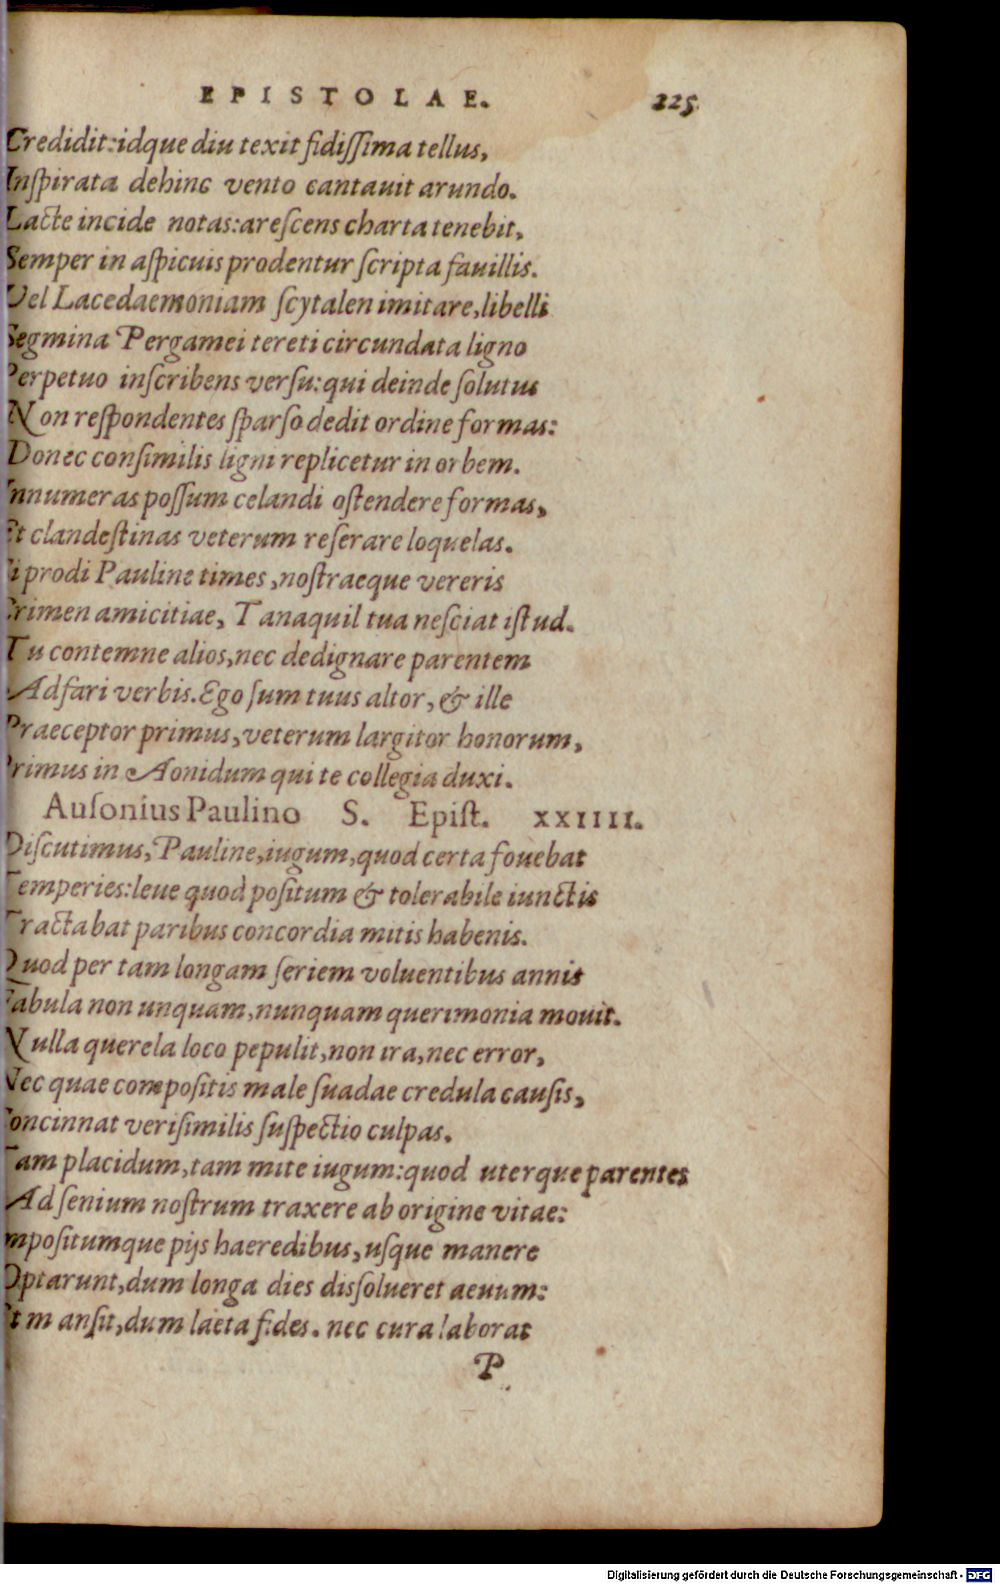 EPISTOLAE. 225
Credidit:idque diu texit fidissima tellus,
Inspirata dehinc vento cantauit arundo.
Lacte incide notas:arescens charta tenebit,
Semper in aspicuis prodentur scripta fauillis.
Vel Lacedaemoniam scytalen imitare,libelli
Segmina Pergamei tereti circundata ligno
Perpetuo inscribens versu:qui deinde solutus
Non respondentes sparso dedit ordine formas:
Donec consimilis ligni replicetur in orbem.
Innumeras possum celandi ostendere formas,
Et clandestinas veterum reserare loquelas.
Si prodi Pauline times,nostraeque vereris
Crimen amicitiae, Tanaquil tua nesciat istud.
Tu contemne alios,nec dedignare parentem
Adfari verbis.Ego sum tuus altor,& ille
Praeceptor primus,veterum largitor honorum,
Primus in Aonidum qui te collegia duxi.
Ausonius Paulino S. Epist. XXIIII.
Discutimus,Pauline,iugum,quod certa fouebat
Temperies:leue quod positum & tolerabile iunctis
Tractabat paribus concordia mitis habenis.
Quod per tam longam seriem voluentibus annis
Fabula non unquam,nunquam querimonia mouit.
Nulla querela loco pepulit,non ira,nec error,
Nec quae compositis male suadae credula causis,
Concinnat verisimilis suspectio culpas.
Tam placidum,tam mite iugum:quod uterque parentes
Ad senium nostrum traxere ab origine vitae:
mpositumque pijs haeredibus,usque manere
Optarunt,dum longa dies dissolueret aeuum:
Et mansit,dum laeta fides. nec cura laborat
P
Digitalisierung gefördert durch die Deutsche Forschungsgemeinschaft - DFG